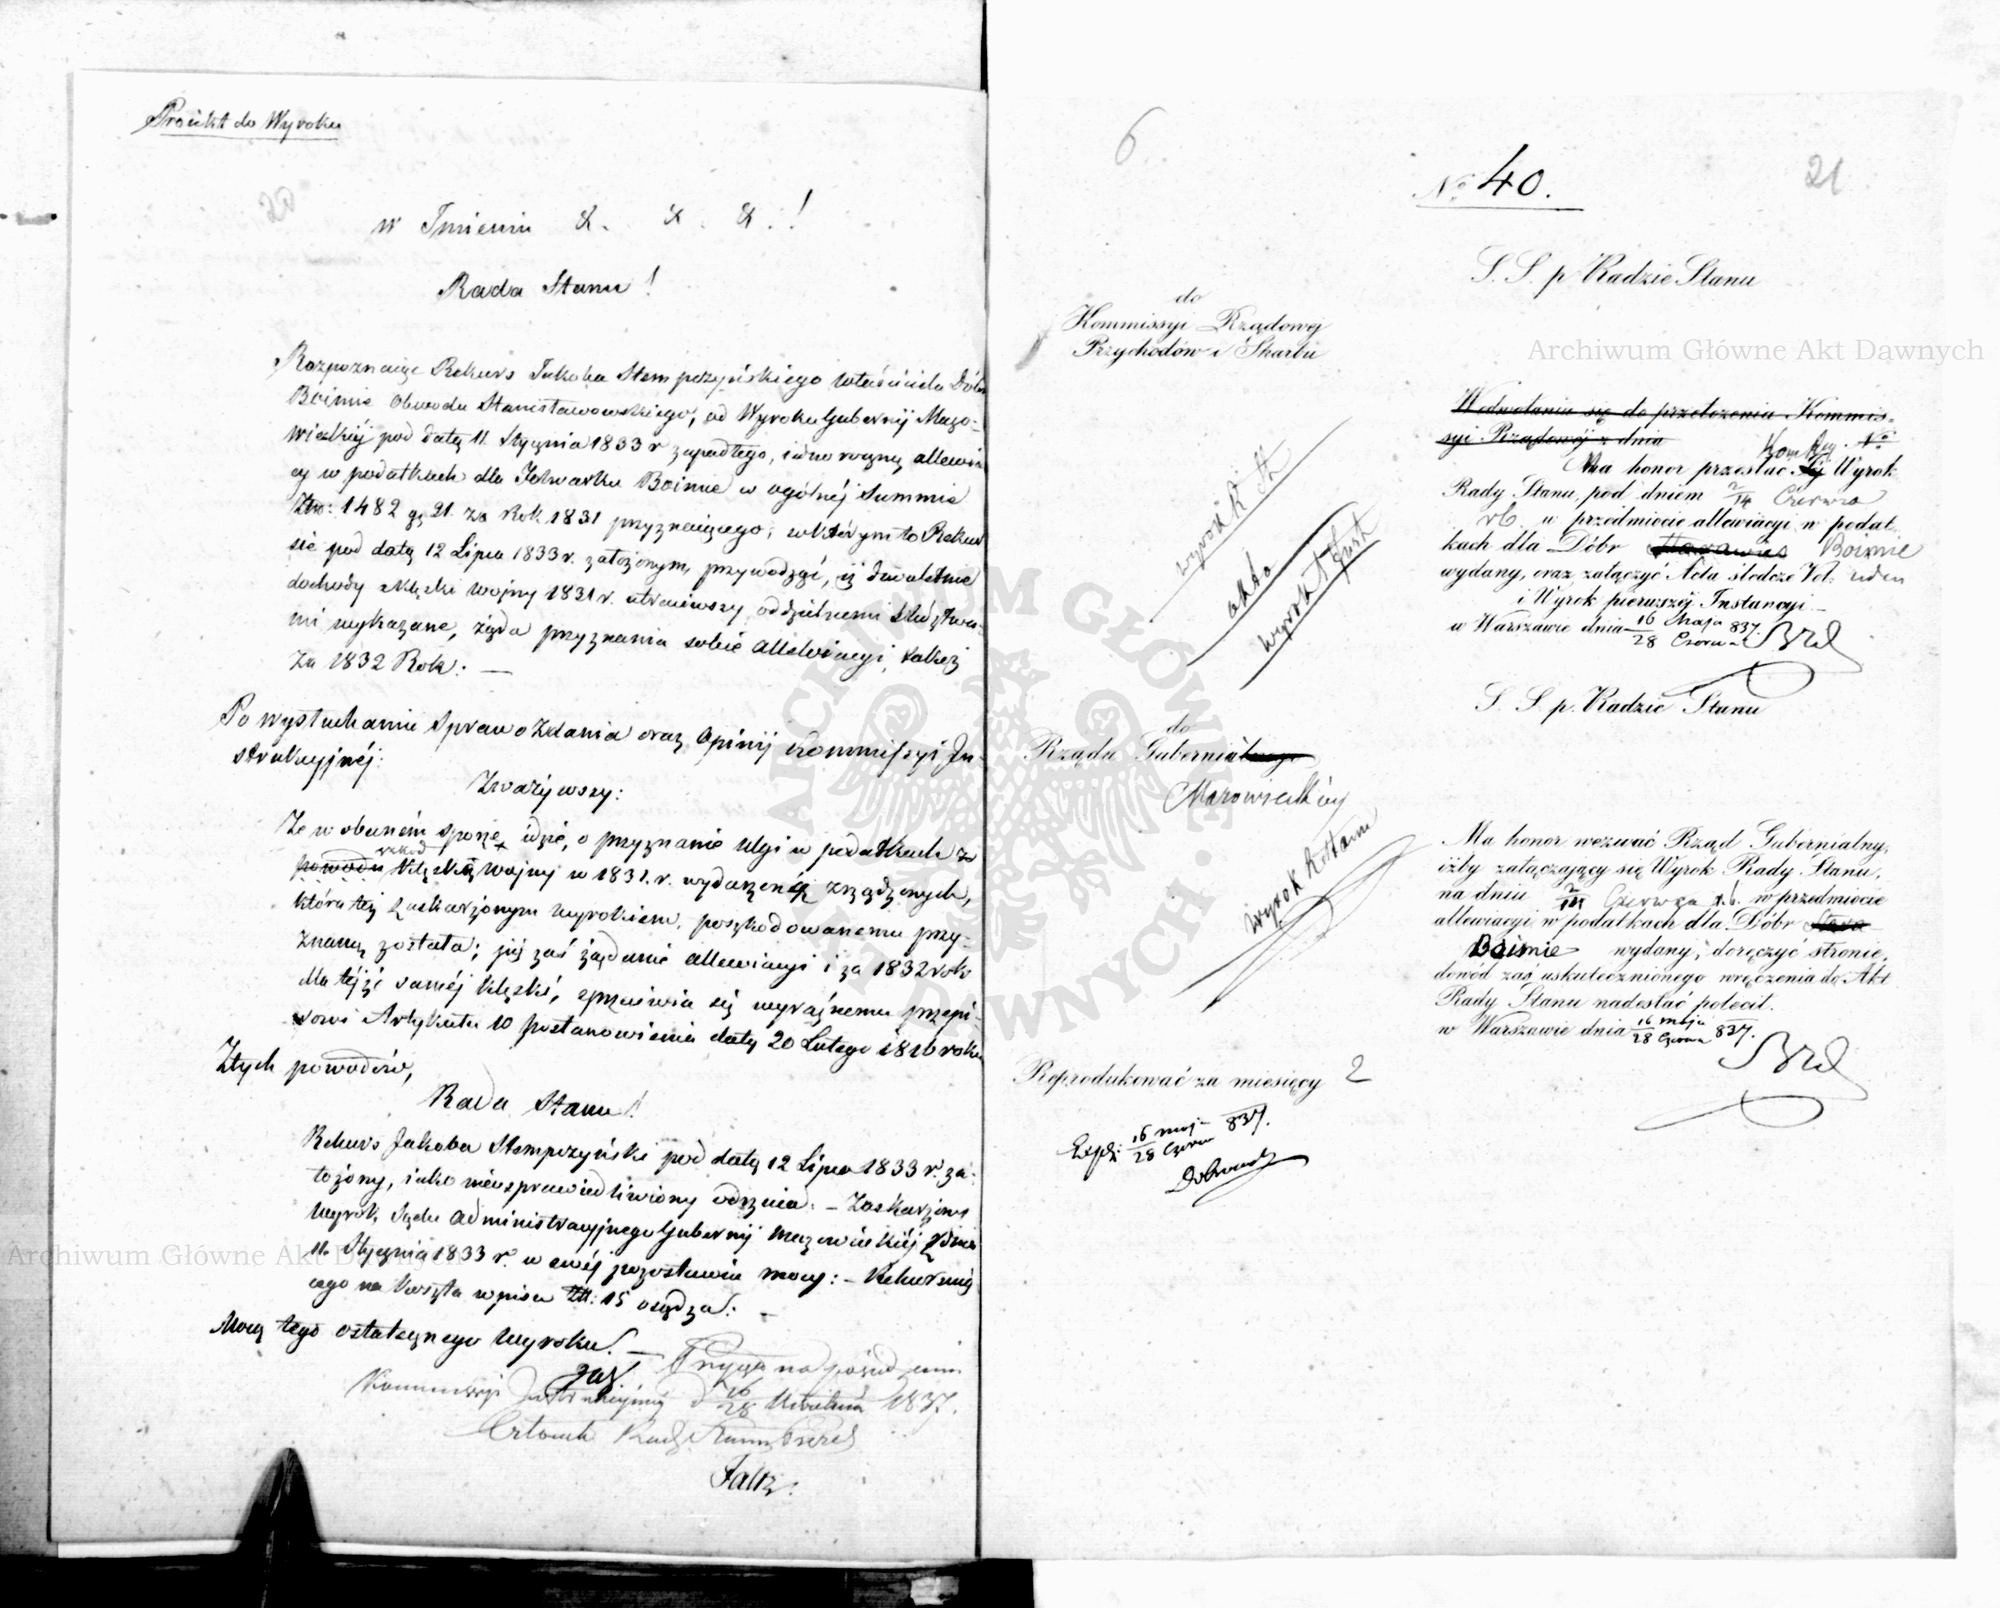 Proiekt do Wyroku
20
w Imieniu &. &. &.!
Rada Stanu!
Rozpoznaiąc Rekurs Jakóba Stempczyńskiego właściciela Dóbr
Boimie Obwodu Stanisławowskiego, od Wyroku Gubernij Mazo-
wieckiéj pod datą 11 Stycznia 1833 r zapadłego, iednoroczną allewia
cyą w podatkach dla Folwarku Boimie w ogólnéj Summie
Złp: 1482 gr 21. za Rok 1831 przyznaiącego; w którym to Rekur
sie pod datą 12 Lipca 1833 r. założonym, przywodząc, iż dwuletnie
dochody z klęski wojny 1831 r. utraciwszy, oddzielnemi śledztwa-
mi wykazane, żąda przyznania sobie allewiacyi, także i
za 1832 Rok: —
Po wysłuchaniu Sprawozdania oraz Opinij Kommissyi In-
strukcyjnéj:
Zważywszy:
że w obecném sporze idzie, o przyznanie ulgi w podatkach z
powodu szkód klęską wojny w 1831. r. wydarzoną zrządzonych,
która też zaskarżonym wyrokiem, poszkodowanemu przy-
znaną została; już zaś żądanie allewiacyi i za 1832 rok
dla téjże saméj klęski, sprzeciwia się wyraźnemu przepi-
sowi Artykułu 10 postanowienia daty 20 Lutego 1816 roku
Z tych powodów,
Rada Stanu!
Rekurs Jakóba Stempczyński pod datą 12 Lipca 1833 r. za-
łożony, iako nieusprawiedliwiony odrzuca. — Zaskarżony
Wyrok Sądu Administracyjnego Gubernij Mazowieckiéj z dnia
11. Stycznia 1833 r. w swéj pozostawia mocy: — Rekursuią
cego na koszta wpisu Złt: 15 osądza. —
Mocą tego ostatecznego Wyroku. —
Przyięto na posiedzeniu
Kommissyi Instrukcyjnéj d 16/28 Kwietnia 1837.
Członek Rady Stanu
6
21
No. 40.
S. S. p. Radzie Stanu
do
Kommissyi Rządowej
Przychodów i Skarbu
W odwołaniu się do przełożenia Kommis-
syi Rządowéj z dnia
Ma honor przesłać Kom Rzą. Wyrok
Rady Stanu, pod dniem 2/14 Czerwca
rb. w przedmiocie allewiacyi w podat-
kach dla Dóbr Boimie
wydany, oraz załączyć Acta śledcze Vol. ieden
i Wyrok pierwszéj Instancyi —
w Warszawie dnia 16 Maja/28 Czerwca 837.
wyrok
akta
wyrok
S. S. p. Radzie Stanu
do
Rządu Gubernialnego
Mazowieckiéy
wyrok
Ma honor wezwać Rząd Gubernialny,
iżby załączający się Wyrok Rady Stanu,
na dniu 2/14 Czerwca r.b. w przedmiocie
allewiacyi w podatkach dla Dóbr
Boimie wydany, doręczyć stronie,
dowód zaś uskutecznionego wręczenia do Akt
Rady Stanu nadesłać polecił.
w Warszawie dnia 16 Maja/28 Czerwca 837.
Reprodukować za miesięcy 2
Exp: 16 maja/28 Czerw 837.
Archiwum Główne Akt Dawnych
Archiwum Główne Akt Dawnych
ARCHIWUM GŁÓWNE AKT DAWNYCH